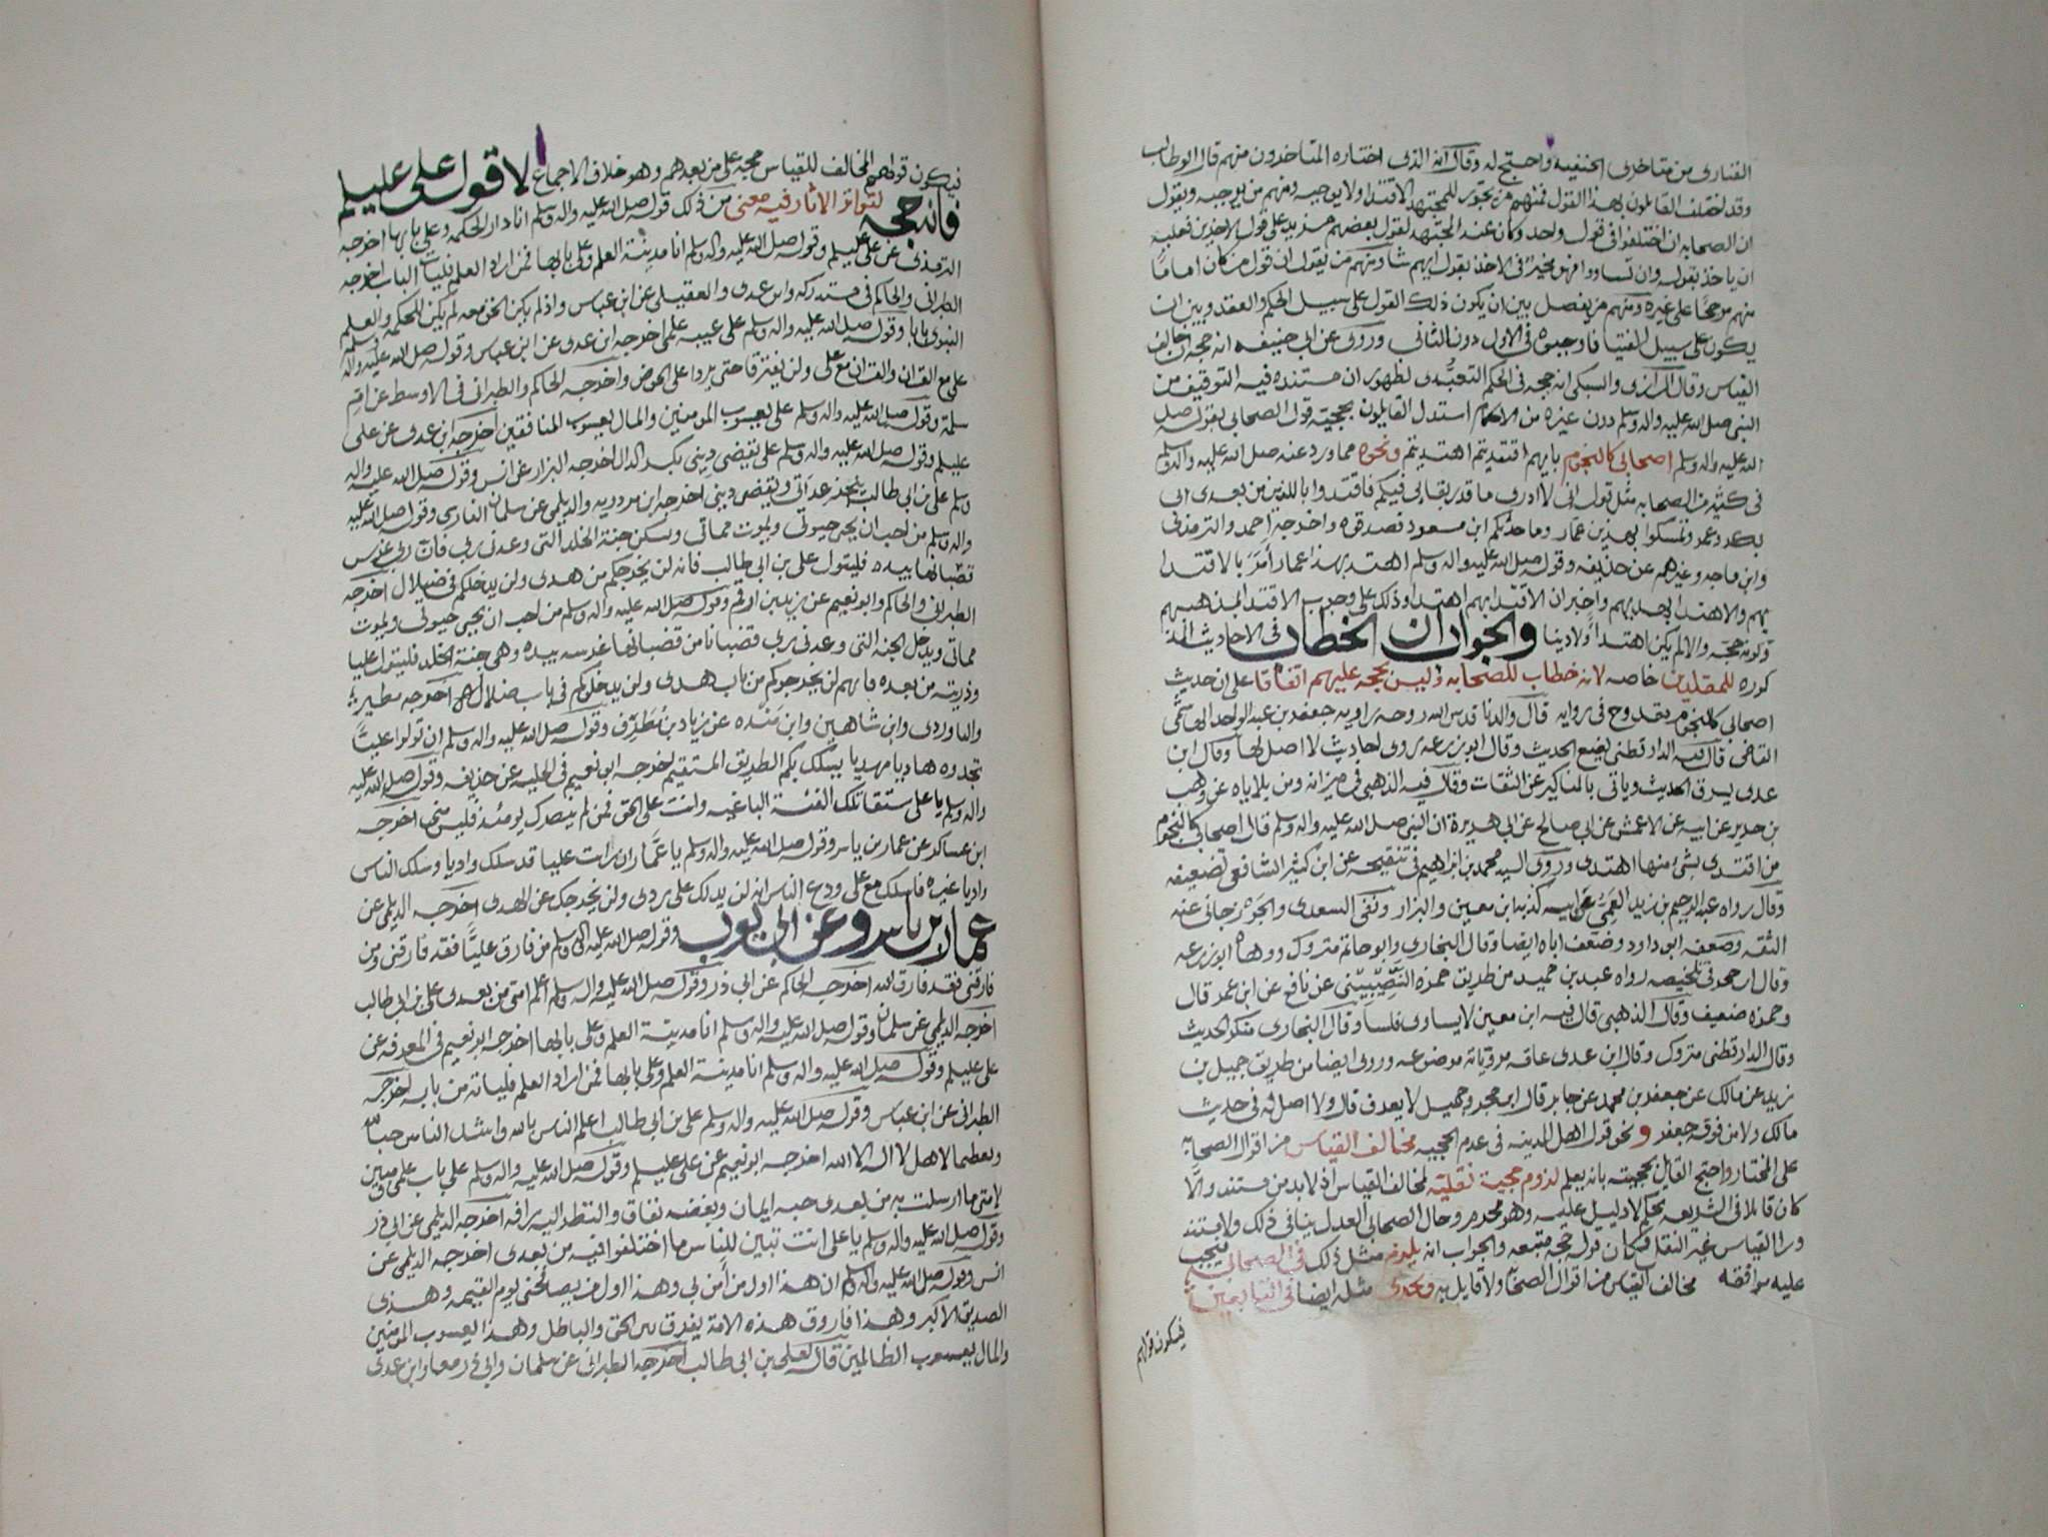 الفنارى من متاخرى الحنفيه واحتج له وقال انه الذى اختاره المتاخرون منهم قال ابوطالب
وقد اختلف القايلون بهذا القول فمنهم من يجوز للمجتهد الاقتدا ولا يوجبه ومنهم من يوجبه ويقول
ان الصحابه ان اختلفوا فى قول واحد وكان عند المجتهد لقول بعضهم مزيد على قول الاخرين فعليه
ان ياخذ بقوله وان تساووا فهو مخير فى الاخذ بقول ايهم شا ومنهم من يقول ان قول من كان اماما
منهم مرجحا على غيره ومنهم من يفصل بين ان يكون ذلك القول على سبيل الحكم والعقد وبين ان
يكون على سبيل الفتيا فاوجبوه فى الاول دون الثانى وروى عن ابى حنيفه انه حجة ان خالف
القياس وقال الرازى والسبكى انه حجه فى الحكم التعبدى لظهور ان مستنده فيه التوقيف من
النبى صلى الله عليه واله وسلم دون غيره من الاحكام استدل القايلون بحجية قول الصحابى بقوله صلى
الله عليه واله وسلم اصحابى كالنجوم بايهم اقتديتم اهتديتم ونحوه مما ورد عنه صلى الله عليه واله وسلم
فى كثير من الصحابه مثل قوله انى لا ادرى ما قدر بقاى فيكم فاقتدوا باللذين من بعدى ابى
بكر وعمر وتمسكوا بهدى عمار وما حدثكم ابن مسعود فصدقوه واخرجه احمد والترمذى
وابن ماجه وغيرهم عن حذيفه وقوله صلى الله عليه واله وسلم اهتدوا بهدى عمار امر بالاقتدا
بهم والاهتدا بهديهم واخبر ان الاقتدا بهم اهتدا وذلك على وجوب الاقتدا لمذهبهم
وكونه حجه والا لم يكن اهتدا ولا دينا والجواب ان الخطاب فى الاحاديث المذ
كوره للمقلدين خاصه لانه خطاب للصحابه وليس بحجه عليهم اتفاقا على ان حديث
اصحابى كالنجوم مقدوح فى روايه قال والدنا قدس الله روحه راويه جعفر بن عبد الواحد الهاشمى
القاضى قال فيه الدارقطنى يضع الحديث وقال ابو زرعه روى احاديث لا اصل لها وقال ابن
عدى يسرق الحديث وياتى بالمناكير عن الثقات وقال فيه الذهبى فى ميزانه ومن بلاياه عن وهب
بن جرير عن ابيه عن الاعمش عن ابى صالح عن ابى هريرة ان النبى صلى الله عليه واله وسلم قال اصحابى كالنجوم
من اقتدى بشئ منها اهتدى وروى السيد محمد بن ابراهيم فى تنقيحه عن ابن كثير الشافعى تضعيفه
وقال رواه عبد الرحيم بن زيد العمى عن ابيه كذبه ابن معين والبزار ونفى السعدى والجوزجانى عنه
الثقه وضعفه ابو داود وضعف اباه ايضا وقال البخارى وابو حاتم متروك ووهاه ابو زرعه
وقال ابن حجر فى تلخيصه رواه عبد بن حميد من طريق حمزه النصيبينى عن نافع عن ابن عمر قال
وحمزه ضعيف وقال الذهبى قال فيه ابن معين لا يساوى فلسا وقال البخارى منكر الحديث
وقال الدارقطنى متروك وقال ابن عدى عامه مروياته موضوعه وروى ايضا من طريق جميل بن
زيد عن مالك عن جعفر بن محمد عن جابر قال ابن حجر وجميل لا يعرف قال ولا اصل له فى حديث
مالك ولا من فوقه جعفر ونحو قول اهل المدينه فى عدم الحجيه مخالف القياس من اقوال الصحابة
على المختار واحتج القايل بحجيته بانه يعلم لزوم حجية نقلية لمخالف القياس اذ لا بد من مستند والا
كان قايلا فى الشريعه بحكم لا دليل عليه وهو محرم وحال الصحابى العدل ينافى ذلك ولا مستند
ورا القياس غير النقل فكان قوله حجه متبعه والجواب انه يلزم مثل ذلك فى الصحابى فيجب
عليه موافقه مخالف القياس من اقوال الصحابه ولا قايل به ويجرى مثله ايضا فى التابعين
فيكون قولهم
فيكون قولهم المخالف للقياس حجه على من بعدهم وهو خلاف الاجماع لا قول على عليلم
فانه حجه لتواتر الاثار فيه معنى من ذلك قوله صلى الله عليه واله وسلم انا دار الحكمه وعلى بابها اخرجه
الترمذى عن على عليلم وقوله صلى الله عليه واله وسلم انا مدينة العلم وعلى بابها فمن اراد العلم فليات الباب اخرجه
الطبرانى والحاكم فى مستدركه وابن عدى والعقيلى عن ابن عباس واذ لم يكن الحق معه لم يكن للحكمه والعلم
النبوى بابا وقوله صلى الله عليه واله وسلم على عيبه علمى اخرجه ابن عدى عن ابن عباس وقوله صلى الله عليه واله وسلم
على مع القران والقران مع على ولن يفترقا حتى يردا على الحوض واخرجه الحاكم والطبرانى فى الاوسط عن ام
سلمة وقوله صلى الله عليه واله وسلم على يعسوب المومنين والمال يعسوب المنافقين اخرجه ابن عدى عن على
عليلم وقوله صلى الله عليه واله وسلم على يقضى دينى بكسر الدال اخرجه البزار عن انس وقوله صلى الله عليه واله
وسلم على بن ابى طالب ينجز عداتى ويقضى دينى اخرجه ابن مردويه والديلمى عن سلمان الفارسى وقوله صلى الله عليه
واله وسلم من احب ان يحيى حيوتى ويموت مماتى ويسكن جنة الخلد التى وعدنى ربى فان ربى غرس
قضبانها بيده فليتول على بن ابى طالب فانه لن يخرجكم من هدى ولن يدخلكم فى ضلال اخرجه
الطبرانى والحاكم وابو نعيم عن زيد بن ارقم وقوله صلى الله عليه واله وسلم من احب ان يحيى حيوتى ويموت
مماتى ويدخل الجنه التى وعدنى ربى قضبانا من قضبانها غرسه بيده وهى جنة الخلد فليتول عليا
وذريته من بعده فانهم لن يخرجوكم من باب هدى ولن يدخلوكم فى باب ضلاله اخرجه مطير
والباوردى وابن شاهين وابن منده عن زياد بن مطرف وقوله صلى الله عليه واله وسلم ان تولوا عليا
تجدوه هاديا مهديا يسلك بكم الطريق المستقيم اخرجه ابو نعيم فى الحليه عن حذيفه وقوله صلى الله عليه
واله وسلم يا على ستقاتلك الفئة الباغيه وانت على الحق فمن لم ينصرك يومئذ فليس منى اخرجه
ابن عساكر عن عمار بن ياسر وقوله صلى الله عليه واله وسلم يا عمار ان رايت عليا قد سلك واديا وسلك الناس
واديا غيره فاسلك مع على ودع الناس انه لن يدلك على ردى ولن يخرجك عن الهدى اخرجه الديلمى عن
عمار بن ياسر وعن ابى ايوب وقوله صلى الله عليه واله وسلم من فارق عليا فقد فارقنى ومن
فارقنى فقد فارق الله اخرجه الحاكم عن ابى ذر وقوله صلى الله عليه واله وسلم اعلم امتى من بعدى على بن ابى طالب
اخرجه الديلمى عن سلمان وقوله صلى الله عليه واله وسلم انا مدينة العلم وعلى بابها اخرجه ابو نعيم فى المعرفه عن
على عليلم وقوله صلى الله عليه واله وسلم انا مدينة العلم وعلى بابها فمن اراد العلم فلياته من بابه اخرجه
الطبرانى عن ابن عباس وقوله صلى الله عليه واله وسلم على بن ابى طالب اعلم الناس بالله واشد الناس حبا
وتعظيما لاهل لا اله الا الله اخرجه ابو نعيم عن على عليلم وقوله صلى الله عليه واله وسلم على باب علمى ومبين
لامتى ما ارسلت به من بعدى حبه ايمان وبغضه نفاق والنظر اليه رافه اخرجه الديلمى عن ابى ذر
وقوله صلى الله عليه واله وسلم يا على انت تبين للناس ما اختلفوا فيه من بعدى اخرجه الديلمى عن
انس وقوله صلى الله عليه واله وسلم ان هذا اول من امن بى وهذا اول من يصافحنى يوم القيمه وهذى
الصديق الاكبر وهذا فاروق هذه الامة يفرق بين الحق والباطل وهذا يعسوب المومنين
والمال يعسوب الظالمين قاله لعلى بن ابى طالب اخرجه الطبرانى عن سلمان وابى ذر معا وابن عدى